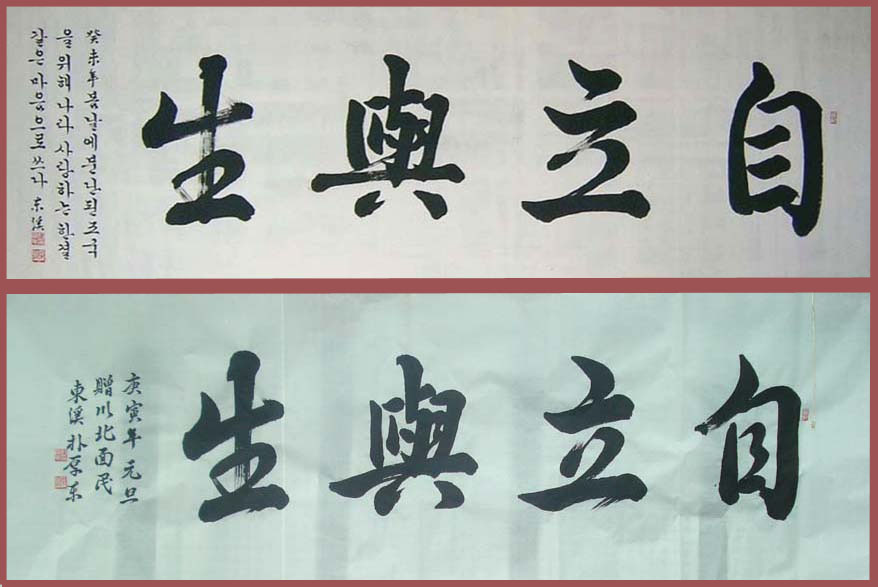 自立與生
癸未年봄날에분단된조국
을위해나라사랑하는한결
같은마음으로쓰다 东溪
自立與生
庚寅年 元旦
贈川北面民
東溪 朴 东